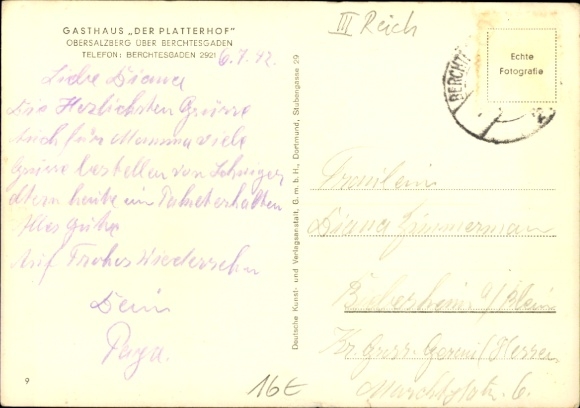 GASTHAUS „DER PLATTERHOF"
OBERSALZBERG ÜBER BERCHTESGADEN
TELEFON: BERCHTESGADEN 2921
6.7.42.
Liebe Diana
Die Herzlichsten Grüsse
Auch für Mamma viele
Grüsse bestellen von Schwieger
eltern heute ein Paket erhalten
Alles Gute
Auf Frohes Wiedersehn
Dein
Papa.
9
Deutsche Kunst- und Verlagsanstalt, G. m. b. H., Dortmund, Stubengasse 29
III Reich
BERCHT
Echte
Fotografie
Fräulein
Diana Zimmerman
a/Rhein
Kr. Gross Gerau/Hessen
6.
16€